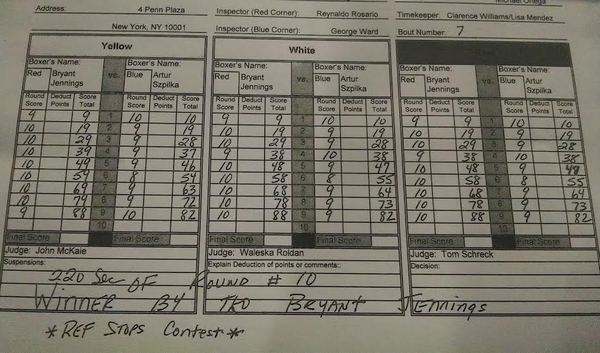 Address: 4 Penn Plaza
New York, NY 10001
Inspector (Red Corner): Reynaldo Rosario
Inspector (Blue Corner): George Ward
Michael Ortega
Timekeeper: Clarence Williams/Lisa Mendez
Bout Number: 7
Yellow
Boxer's Name: Boxer's Name:
Red Bryant Jennings vs. Blue Artur Szpilka
Round Score Deduct Points Score Total Round Score Deduct Points Score Total
9 9 1 10 10
10 19 2 9 19
10 29 3 9 28
10 39 4 9 37
10 49 5 9 46
10 59 6 8 54
10 69 7 9 63
10 79 8 9 72
9 88 9 10 82
10
Final Score Final Score
Judge: John McKaie
White
Boxer's Name: Boxer's Name:
Red Bryant Jennings vs. Blue Artur Szpilka
Round Score Deduct Points Score Total Round Score Deduct Points Score Total
9 9 1 10 10
10 19 2 9 19
10 29 3 9 28
9 38 4 10 38
10 48 5 9 47
10 58 6 8 55
10 68 7 9 64
10 78 8 9 73
10 88 9 9 82
10
Final Score Final Score
Judge: Waleska Roldan
Boxer's Name: Boxer's Name:
Red Bryant Jennings vs. Blue Artur Szpilka
Round Score Deduct Points Score Total Round Score Deduct Points Score Total
9 9 1 10 10
10 19 2 9 19
10 29 3 9 28
9 38 4 10 38
10 48 5 9
10 58 6 8 55
10 68 7 9 64
10 78 8 9 73
10 88 9 9 82
10
Final Score Final Score
Judge: Tom Schreck
Suspensions: Explain Deduction of points or comments:: Decision:
220 Sec OF ROUND # 10
WINNER BY TKO BRYANT JENNINGS
*REF STOPS Contest*